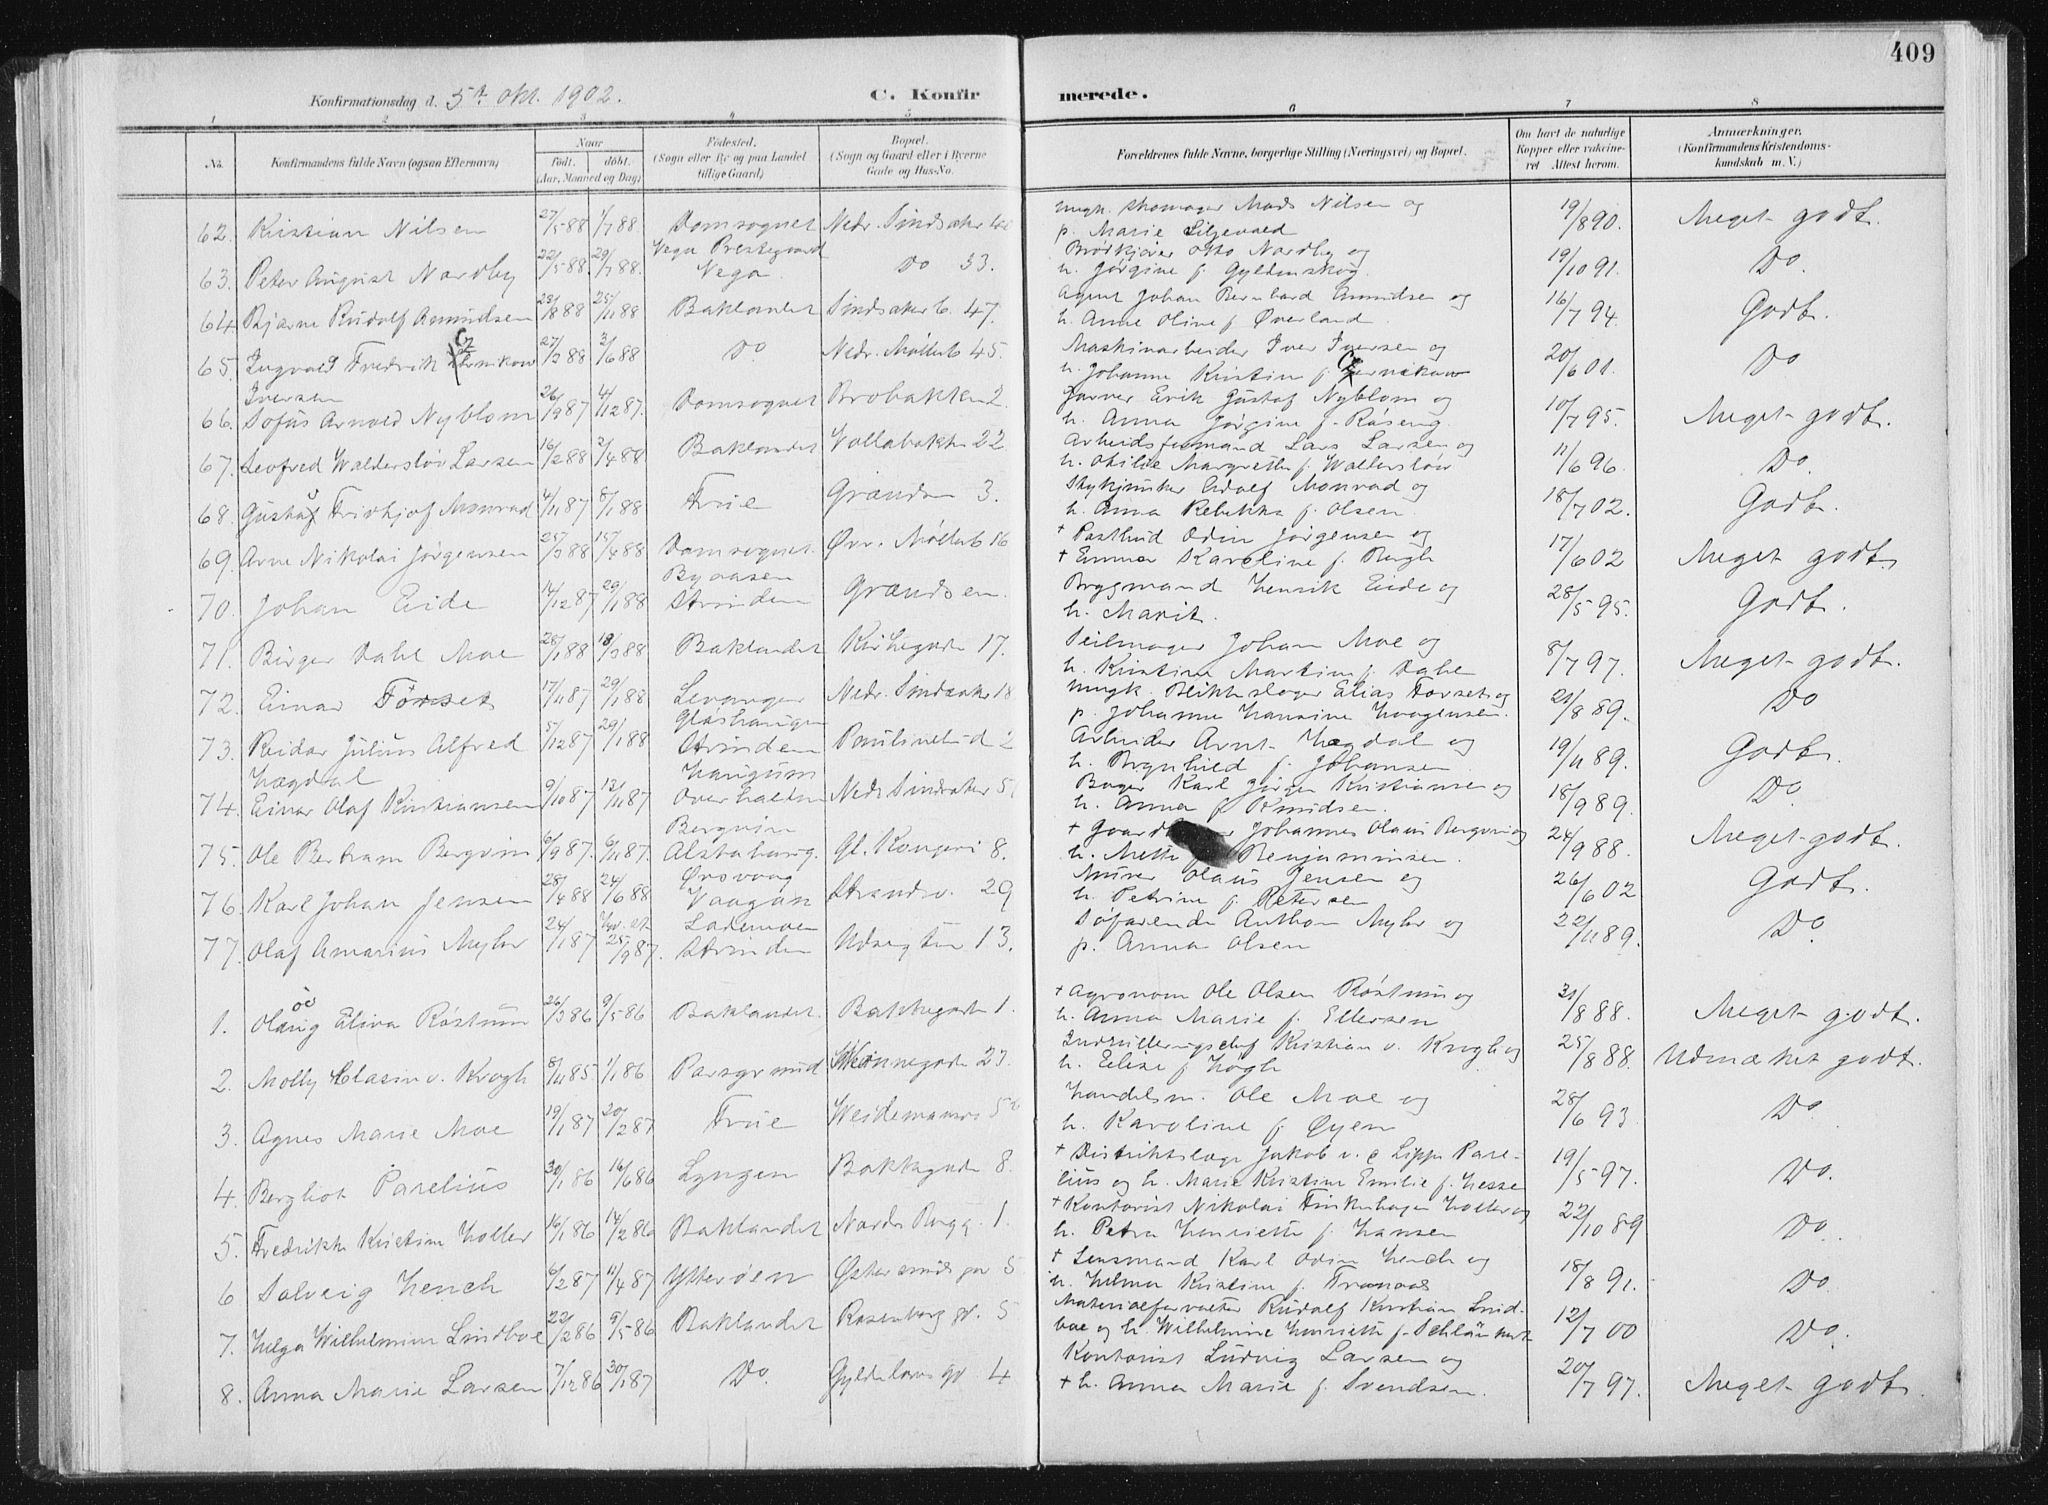 409
Konfirmationsdag d. 5te Okt. 1902. C. Konfirmerede.
1 2 3 4 5 6 7 8
No. Konfirmandens fulde Navn (ogsaa Efternavn) Naar Født. døbt. (Aar, Maaned og Dag) Fødested. (Sogn eller By og paa Landet tillige Gaard) Bopæl. (Sogn og Gaard eller i Byerne Gade og Hus-No. Forældrenes fulde Navne, borgerlige Stilling (Næringsvei) og Bopæl. Om havt de naturlige Kopper eller vaccineret Attest herom. Anmærkninger. (Konfirmandens Kristendomskundskab m. V.)
62. Kristian Nilsen 27/5 88 1/7 88 Domsognet Nedr. Sindsaker ungk. Skomager Mads Nilsen og 19/8 90. Meget godt.
p. Marie Liljevold
63. Peter August Nordby 22/5 88. 29/7 88. Vega Prestegaard Vega. Do 33. Brødkjører Otto Nordby og 19/10 91. Do.
h. Jørgine f. Gyldenskog.
64. Bjarne Rudolf Amundsen 23/8 88 25/11 88 Baklandet Sindsaker b. 47. Agent Johan Bernhard Amundsen og 16/7 94. Godt.
h. Anne Oline f. Øverland.
65. Ingvald Fredrik Iversen 27/3 88 3/6 88 Do Nedr. Møllenb 45. Maskinarbeider Iver Iversen og 20/6 01. Do
h. Johanne Kristine f.
66. Sofus Arnold Nyblom 26/9 87 4/12 87. Domsognet Brobakken 2. Garver Erik Gustaf Nyblom og 10/7 95. Meget godt.
h. Anna Jørgine f. Røseng.
67. Leofred Walderslöv Larsen 16/2 88 2/4 88 Baklandet Vollabakken 22 Arbeidsformand Lars Larsen og 11/6 96. Do.
h. Otilie Margrethe f. Wallerslöv
68. Gustav Fridtjof Monrad 4/11 87 8/1 88 Frue Grændsen 3. Stykjunker Adolf Monrad og 18/7 02. Godt.
h. Anna Rebekka f. Olsen.
69. Arne Nikolai Jørgensen 25/3 88 15/4 88 Domsognet. Øvr. Møllenb 16 + Postbud Odin Jørgensen og 17/6 02 Meget godt.
+ Emma Karoline f. Bergh
70. Johan Eide 14/12 87 29/1 88 Byaasen Strinden Grændsen. Brygmand Henrik Eide og 28/5 95. Godt.
h. Marit.
71. Birger Dahl Moe 28/1 88 18/3 88 Baklandet Kirkegaden 17. Seilmager Johan Moe og 8/7 97. Meget godt.
h. Kristine Martine f. Dahl
72. Einar Forset 17/11 87 29/1 88 Levanger Nedr. Sindsaker 18 ungk. Blikkslager Elias Forset og 21/8 89. Do
p. Johanne Hansine Haagensen.
73. Reidar Julius Alfred Hægdal 5/12 87 29/1 88 Gløshaugen Strinden Paulinelund 2 Arbeider Arnt Hægdal og 19/11 89. Godt.
h. Brynhild f. Johansen
74. Einar Olaf Kristiansen 9/10 87 12/11 87 Haugum Overhalden Nedr. Sindsaker Bager Karl Jørgen Kristiansen og 18/9 89. Do.
h. Anna f. Knudsen.
75. Ole Bertram Bergvin 6/9 87. 6/11 87. Bergvin Alstahaug. Gl. Kongevi 8. + Johannes Olaus Bergvin og 24/9 88. Meget godt.
h. Mette Benjaminsen.
76. Karl Johan Jensen 28/4 88 24/6 88 Ørsvaag Vaagan Strandv. 29 Murer Olaus Jensen og 26/6 02 Godt.
h. Petrine f. Petersen
77. Olaf Amarius Myhr 24/1 87 25/9 87. Lademoen Strinden Udsigten 13. Søfarende Anthon Myhr og 22/11 89. Do.
p. Anna Olsen
1. Olaug Elisa Røstum 26/3 86 9/5 86 Baklandet. Bakkegaden 1. + Agronom Ole Olsen Røstum og 31/8 88. Meget godt.
h. Anna Marie f. Ellersen
2. Molly Clasine v. Krogh 8/11 85 1/1 86 Porsgrund Skonnegaden 27. Indrulleringschef Kristian v. Krogh og 25/8 88. Udmærket godt.
h. Elise f. Høgh
3. Agnes Marie Moe 19/1 87 20/2 87 Frue Weidemannsv. Handelsm. Ole Moe og 28/6 93. Do.
h. Karoline f. Øyen
4. Bergliot Parelius 30/1 86 16/6 86 Lyngen Bakkegaden 8. + Distriktslæge Jakob v. d Lippe Pare- 19/5 97. Do.
lius og h. Marie Kristine Emilie f. Hesse
5. Fredrikke Kristine Holler 16/1 86 14/2 86 Baklandet Nordr. Brygg. 1. + Kontorist Nikolai Finkenhagen Holler og 22/10 89 Do.
h. Petra Henriette f. Hansen
6 Solveig Henck 6/2 87 11/4 87 Ytterøen 5 + Lensmand Karl Odin Henck og 18/8 91. Do.
h. Helma Kristine f. Tranaas
7. Helga Wilhelmine Lindboe 22/2 86 9/5 86 Baklandet Rosenborg gd. 5 Materialforvalter Rudolf Kristian Lind- 12/7 00 Do.
boe og h. Wilhelmine Henriette f.
8. Anna Marie Larsen 7/12 86 30/1 87 Do. Gyldenløves gd 4 Kontorist Ludvig Larsen og 20/7 97. Meget godt.
+ h. Anna Marie f. Svendsen.